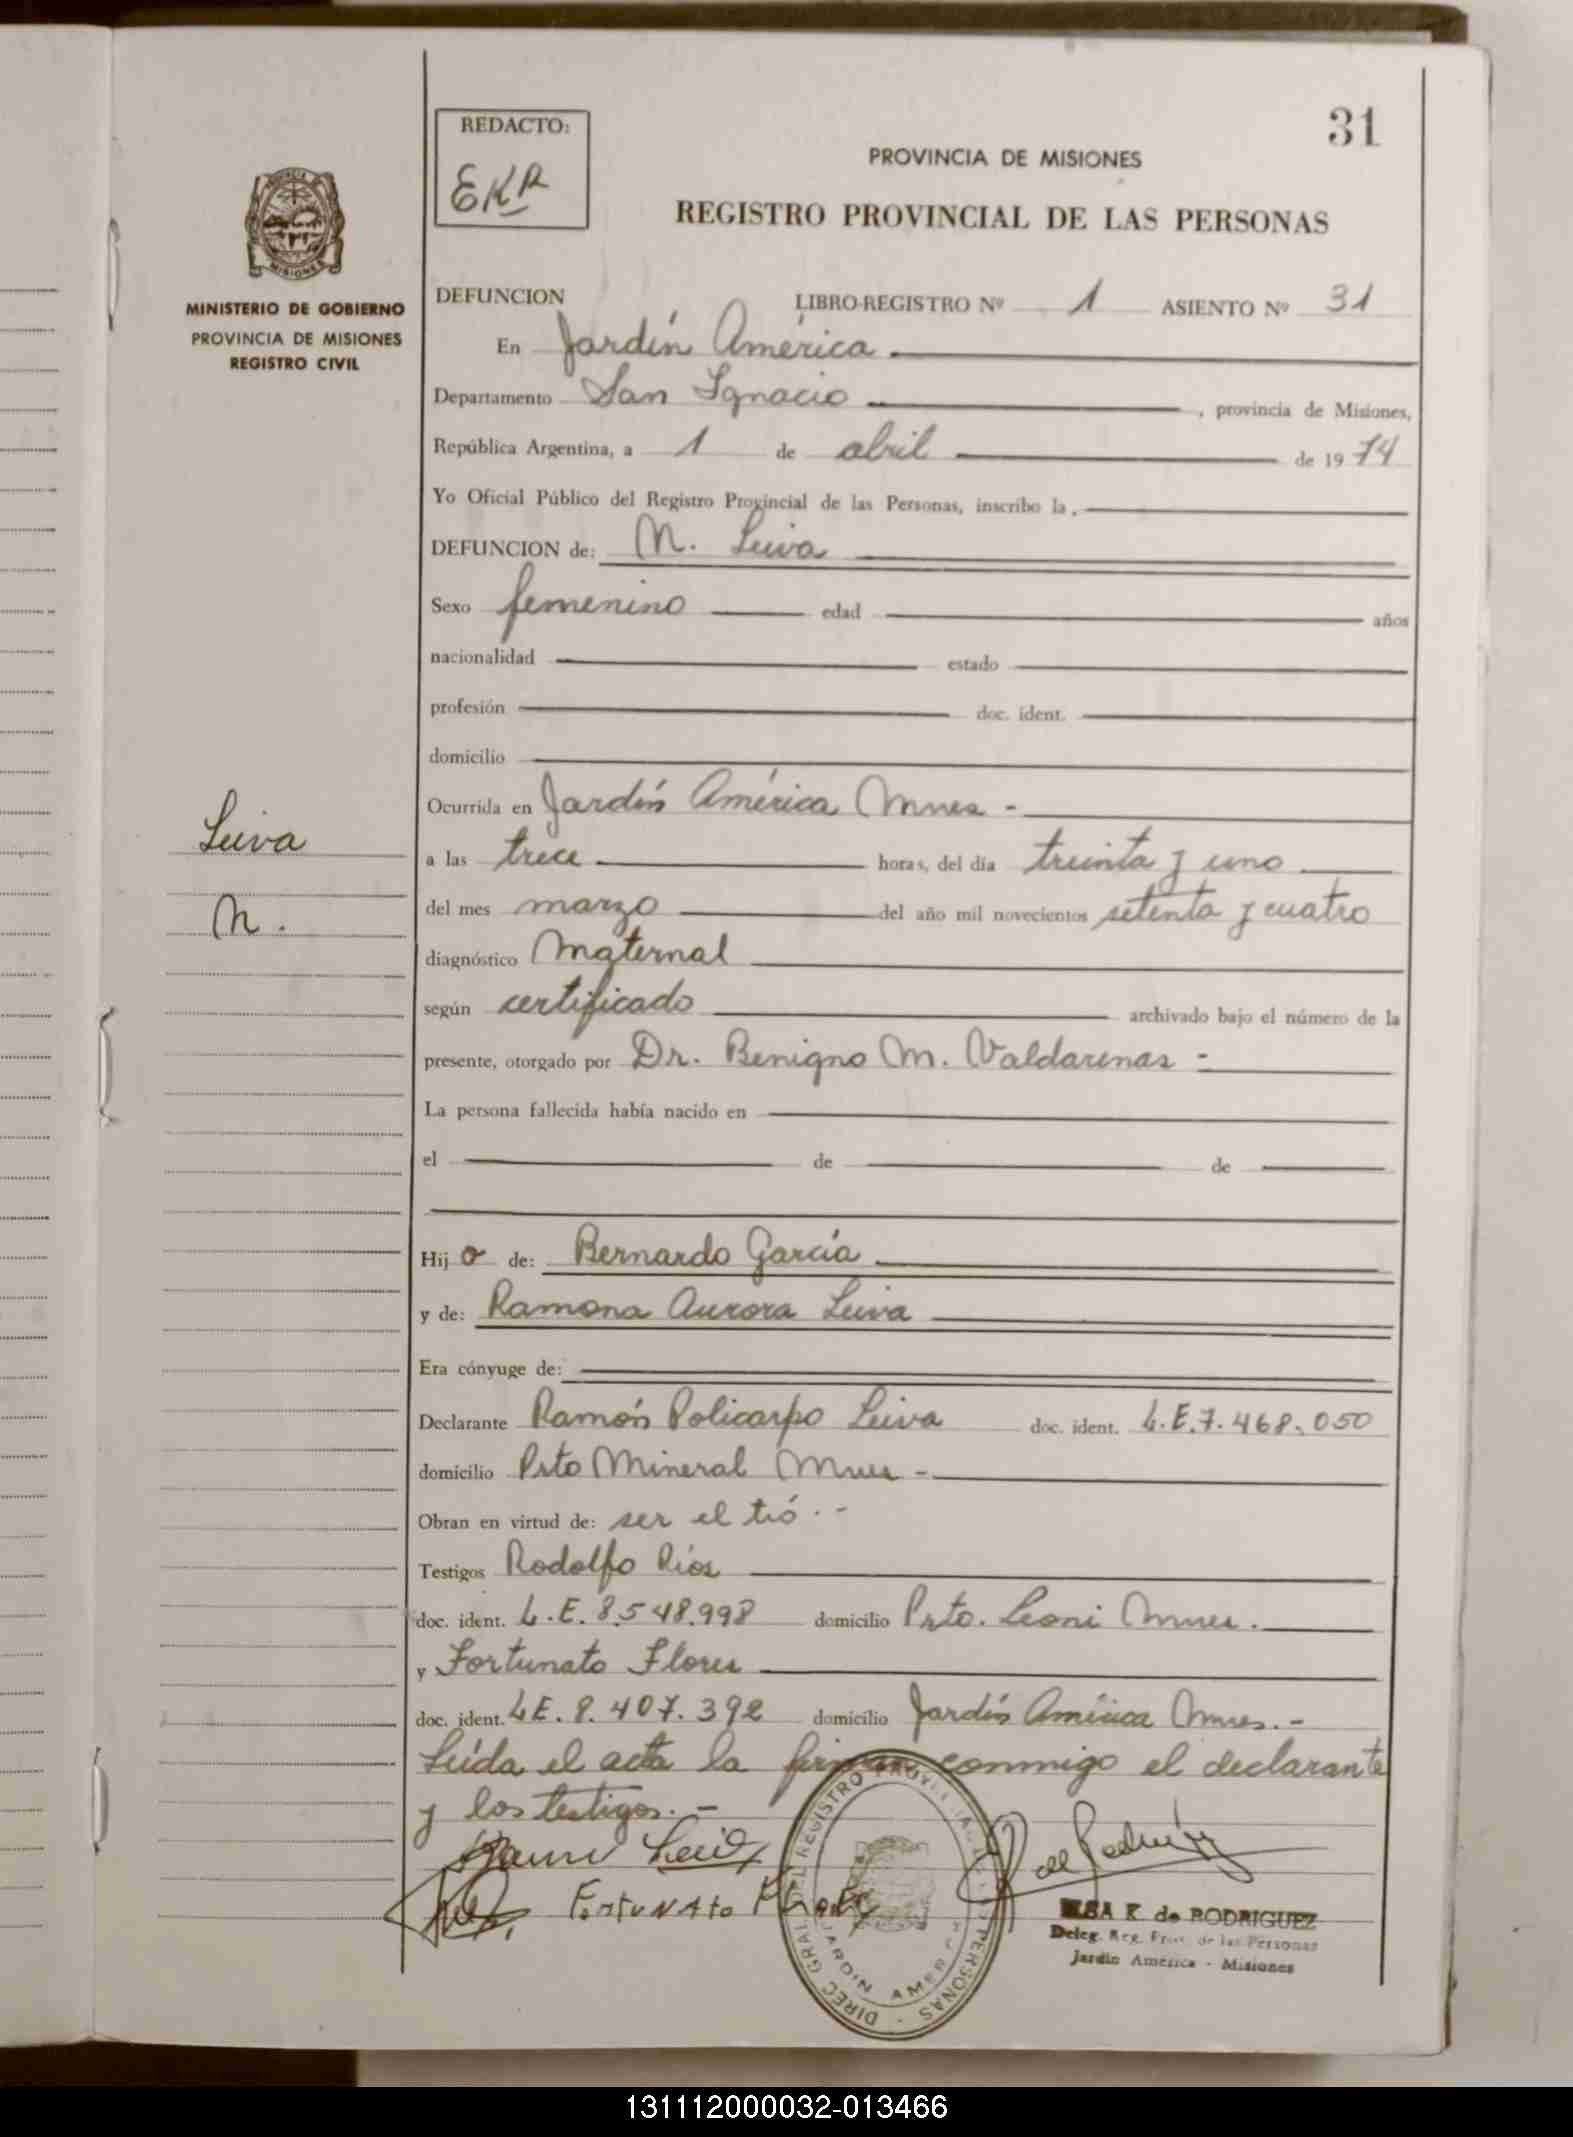 31
REDACTO:
EKR
PROVINCIA DE MISIONES
REGISTRO PROVINCIAL DE LAS PERSONAS
MINISTERIO DE GOBIERNO
PROVINCIA DE MISIONES
REGISTRO CIVIL
DEFUNCION LIBRO-REGISTRO Nº 1 ASIENTO Nº 31
En Jardín América
Departamento San Ignacio, provincia de Misiones,
República Argentina, a 1 de abril de 1974
Yo Oficial Público del Registro Provincial de las Personas, inscribo la,
DEFUNCION de: N. Leiva
Sexo femenino edad años
nacionalidad estado
profesión doc. ident.
domicilio
Ocurrida en Jardín América Mnes -
Leiva
a las trece horas, del día treinta y uno
N.
del mes marzo del año mil novecientos setenta y cuatro
diagnóstico Maternal
según certificado archivado bajo el número de la
presente, otorgado por Dr. Benigno M. Valdarenas -
La persona fallecida había nacido en
el de de
Hijo de: Bernardo García
y de: Ramona Aurora Leiva
Era cónyuge de:
Declarante Ramón Policarpo Leiva doc. ident. L.E.7.468.050
domicilio Prto Mineral Mnes -
Obran en virtud de: ser el tió.-
Testigos Rodolfo Ríos
doc. ident. L.E. 8.548.998 domicilio Prto. Leoni Mnes.
y Fortunato Flores
doc. ident. LE. 8.407.392 domicilio Jardín América Mnes.-
Leída el acta la firman conmigo el declarante
y los testigos.-
Fortunato Flores
de Rodríguez
DIREC GRAL DEL REGISTRO PROVINCIAL DE LAS PERSONAS -
JARDIN AMERICA
ELSA K de RODRIGUEZ
Deleg. Reg. Prov. de las Personas
Jardín América - Misiones
131112000032-013466